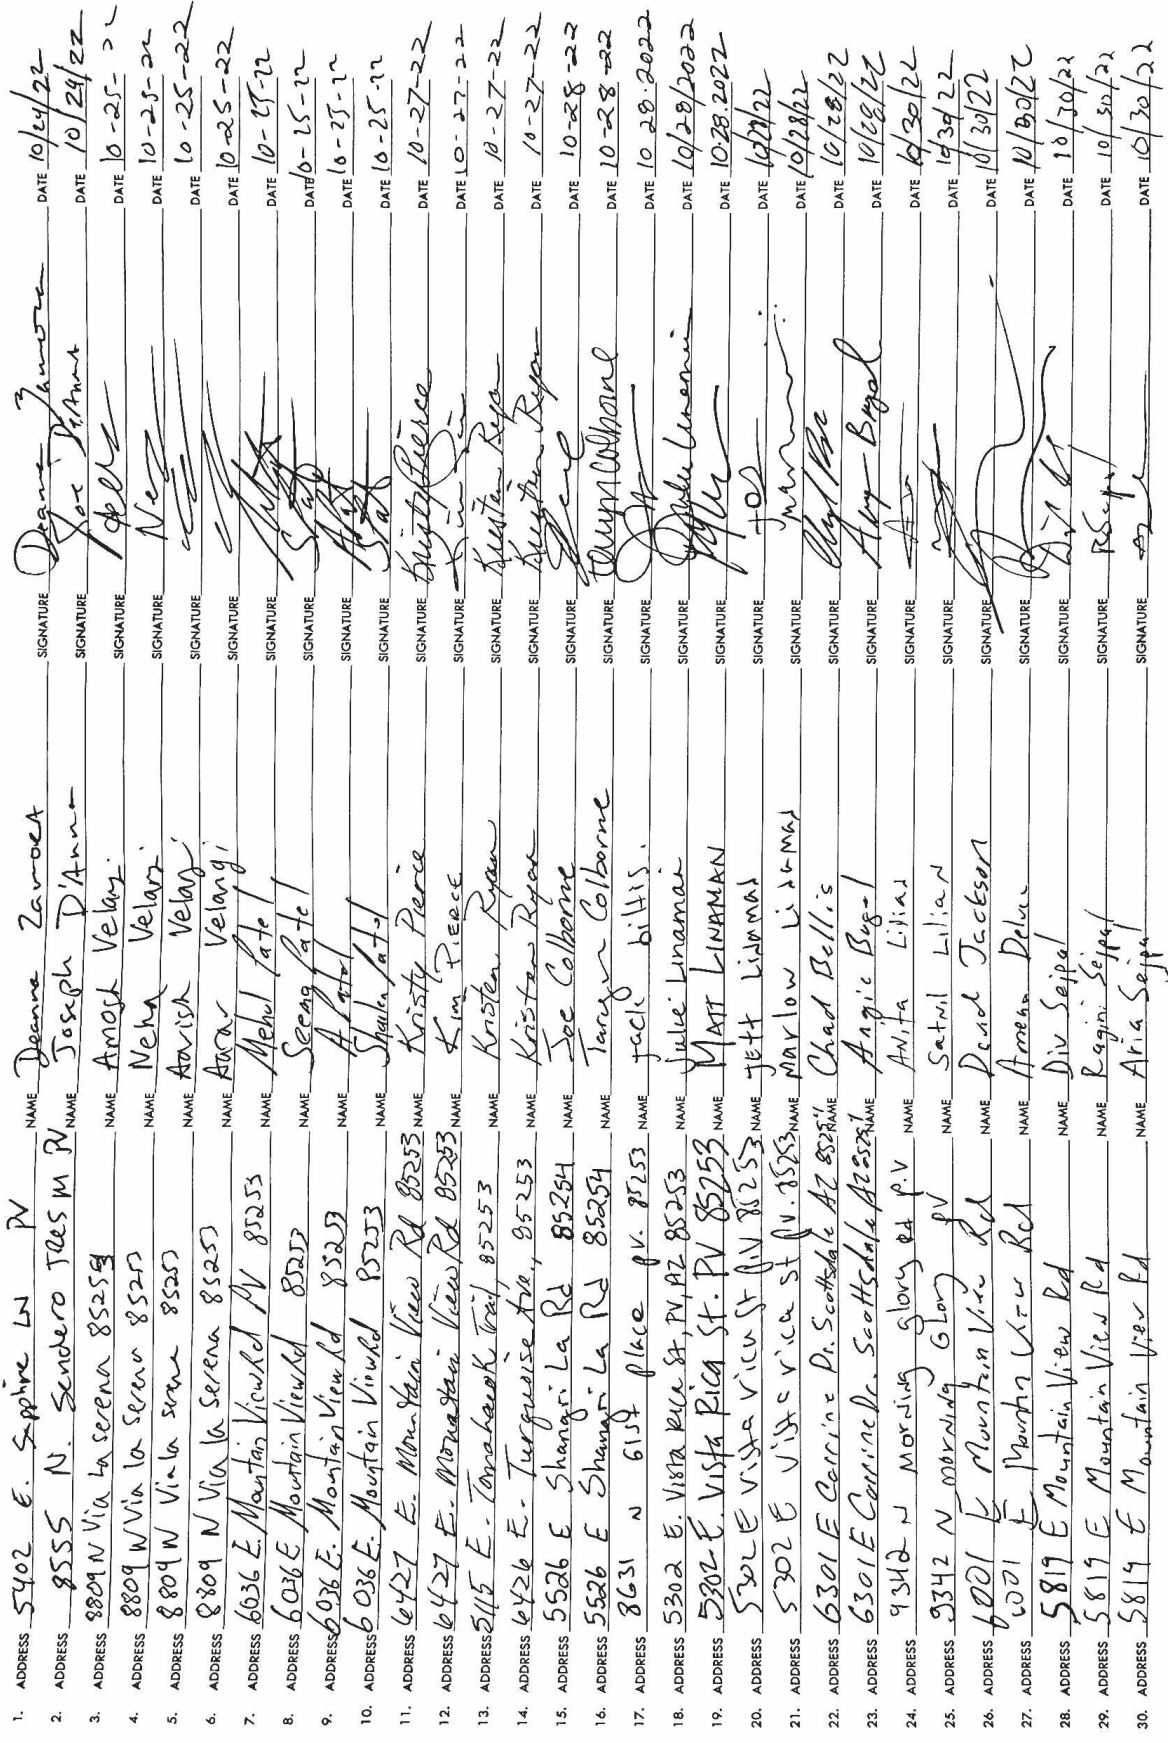 1. ADDRESS 5402 E. Sapphire LN PV NAME Deanna Zamora SIGNATURE Deanna Zamora DATE 10/24/22
2. ADDRESS 8555 N. Sendero Tres M PV NAME Joseph D'Anna SIGNATURE Joe D'Anna DATE 10/24/22
3. ADDRESS 8809 N Via La serena 85253 NAME Amosh Velagi SIGNATURE DATE 10-25-22
4. ADDRESS 8809 N Via la seren 85253 NAME Neha Velagi SIGNATURE DATE 10-25-22
5. ADDRESS 8809 N Via la serena 85253 NAME Aarish Velagi SIGNATURE DATE 10-25-22
6. ADDRESS 8809 N Via la serena 85253 NAME Aarav Velangi SIGNATURE DATE 10-25-22
7. ADDRESS 6036 E. Mountain View Rd PV 85253 NAME Mehul Patel SIGNATURE DATE 10-25-22
8. ADDRESS 6036 E Mountain View Rd 85253 NAME Seema Patel SIGNATURE DATE 10-25-22
9. ADDRESS 6036 E. Mountain View Rd 85253 NAME A Patel SIGNATURE DATE 10-25-22
10. ADDRESS 6036 E. Mountain View Rd 85253 NAME Patel SIGNATURE DATE 10-25-22
11. ADDRESS 6427 E. Mountain View Rd 85253 NAME Kristy Pierce SIGNATURE Kristy Pierce DATE 10-27-22
12. ADDRESS 6427 E. Mountain View Rd 85253 NAME Kim PIERCE SIGNATURE DATE 10-27-22
13. ADDRESS 5115 E. Tomahawk Trail, 85253 NAME Kristen Ryan SIGNATURE Kristen Ryan DATE 10-27-22
14. ADDRESS 6426 E. Turquoise Ave., 85253 NAME Kristen Ryan SIGNATURE Kristen Ryan DATE 10-27-22
15. ADDRESS 5526 E Shangri La Rd 85254 NAME Joe Colborne SIGNATURE DATE 10-28-22
16. ADDRESS 5526 E Shangri La Rd 85254 NAME Taryn Colborne SIGNATURE Taryn Colborne DATE 10-28-22
17. ADDRESS 8631 N 61st place pv. 85253 NAME jack biltis. SIGNATURE DATE 10.28.2022
18. ADDRESS 5302 E. Vista Rica St, PV, AZ 85253 NAME Julie Linaman SIGNATURE Julie Linaman DATE 10/28/2022
19. ADDRESS 5302 E. Vista Rica St. PV 85253 NAME MATT LINAMAN SIGNATURE DATE 10.28.2022
20. ADDRESS 5302 E Vista Rica St P.V 85253 NAME Jett Linaman SIGNATURE DATE 10/28/22
21. ADDRESS 5302 E Vista rica St P.V. 85253 NAME Marlow Linaman SIGNATURE DATE 10/28/22
22. ADDRESS 6301 E Corrine Dr. Scottsdale AZ 85254 NAME Chad Bellis SIGNATURE DATE 10/28/22
23. ADDRESS 6301 E Corrine Dr. Scottsdale AZ 85254 NAME Angie SIGNATURE DATE 10/28/22
24. ADDRESS 9342 N Morning glory rd P.V NAME Anita Lilian SIGNATURE DATE 10/30/22
25. ADDRESS 9342 N morning Glory PV NAME Satnil Lilian SIGNATURE DATE 10/30/22
26. ADDRESS 6001 E Mountain View Rd NAME David Jackson SIGNATURE DATE 10/30/22
27. ADDRESS 6001 E Mountain View Rd NAME SIGNATURE DATE 10/30/22
28. ADDRESS 5819 E Mountain View Rd NAME Div Sejpal SIGNATURE DATE 10/30/22
29. ADDRESS 5819 E Mountain View Rd NAME Ragini Sejpal SIGNATURE DATE 10/30/22
30. ADDRESS 5819 E Mountain View Rd NAME Aria Sejpal SIGNATURE DATE 10/30/22